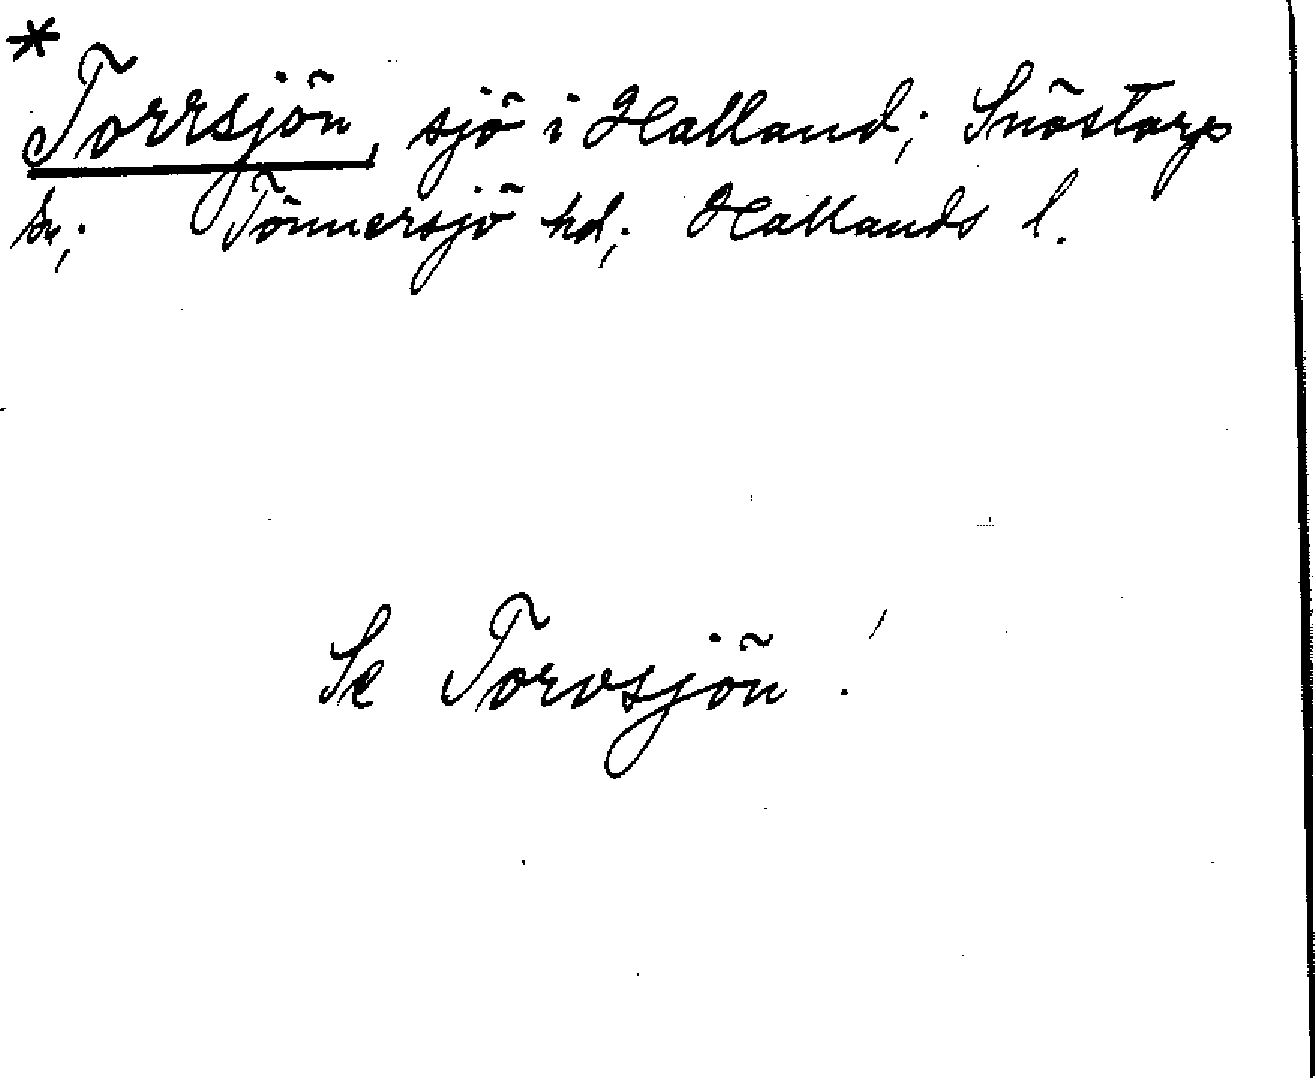 * Torrsjön, sjö i Halland; Snöstorps
sn; Tönnersjö hd; Hallands l.
Se Torvsjön!